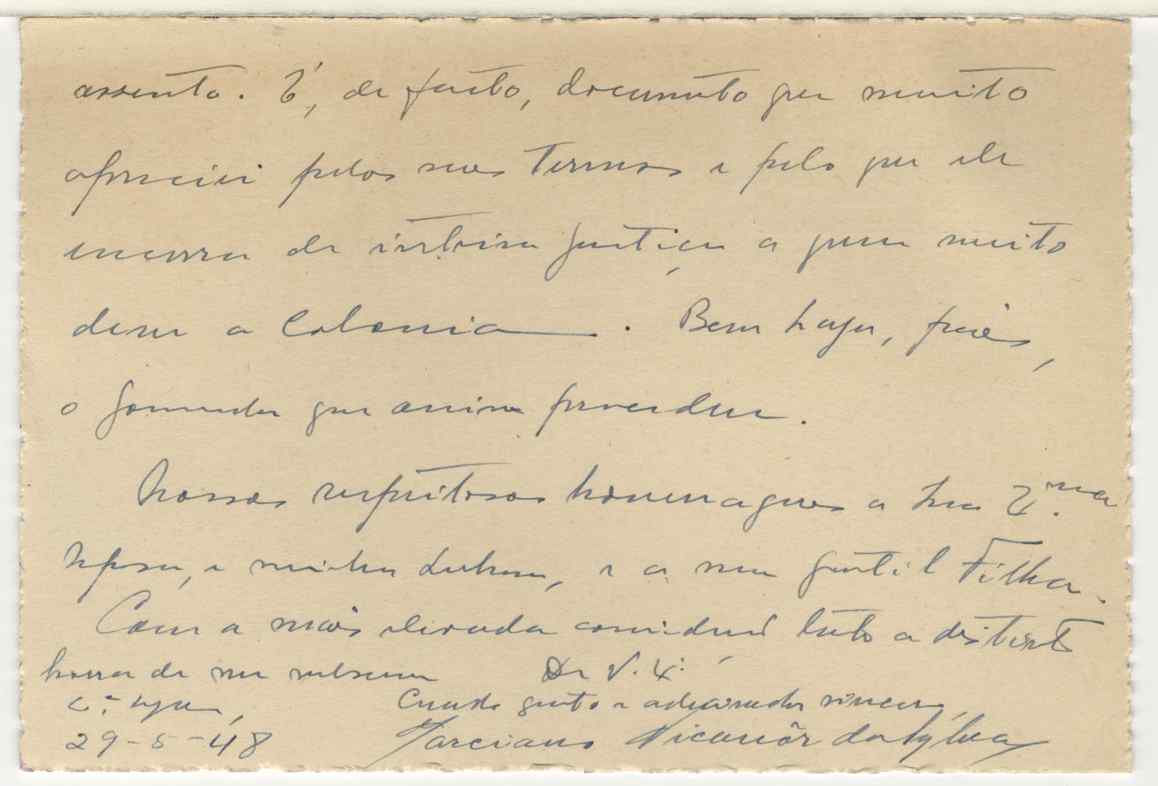 assunto. É, de facto, documento que muito
apreciei pelos seus termos e pelo que ele
encerra de inteira justiça a quem muito
deve a Colonia. Bem haja, pois,
o que assim procedeu.
Nossas respeitosas homenagens a Sua E.ma
Esposa, e minha Senhora, e a sua gentil Filha.
Com a mais elevada consideraç tenho a distinta
honra de me subscrever De V. E.
Criado grato e admirador sincero,
29-5-48 Tarciano Nicanôr da Sylva